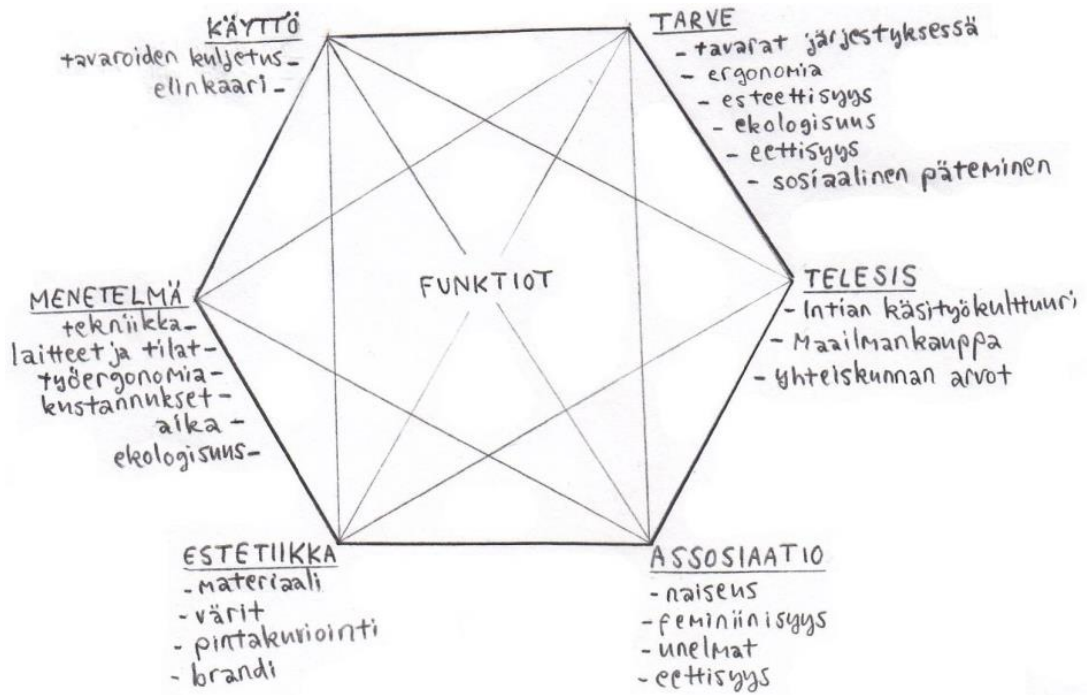 KÄYTTÖ
tavaroiden kuljetus-
elinkaari-
TARVE
- tavarat järjestyksessä
- ergonomia
- esteettisyys
- ekologisuus
- eettisyys
- sosiaalinen päteminen
FUNKTIOT
MENETELMÄ
tekniikka-
laitteet ja tilat-
työergonomia-
kustannukset-
aika-
ekologisuus-
TELESIS
- Intian käsityökulttuuri
- Maailmankauppa
- yhteiskunnan arvot
ESTETIIKKA
- materiaali
- värit
- pintakuviointi
- brandi
ASSOSIAATIO
- naiseus
- feminiinisyys
- unelmat
- eettisyys